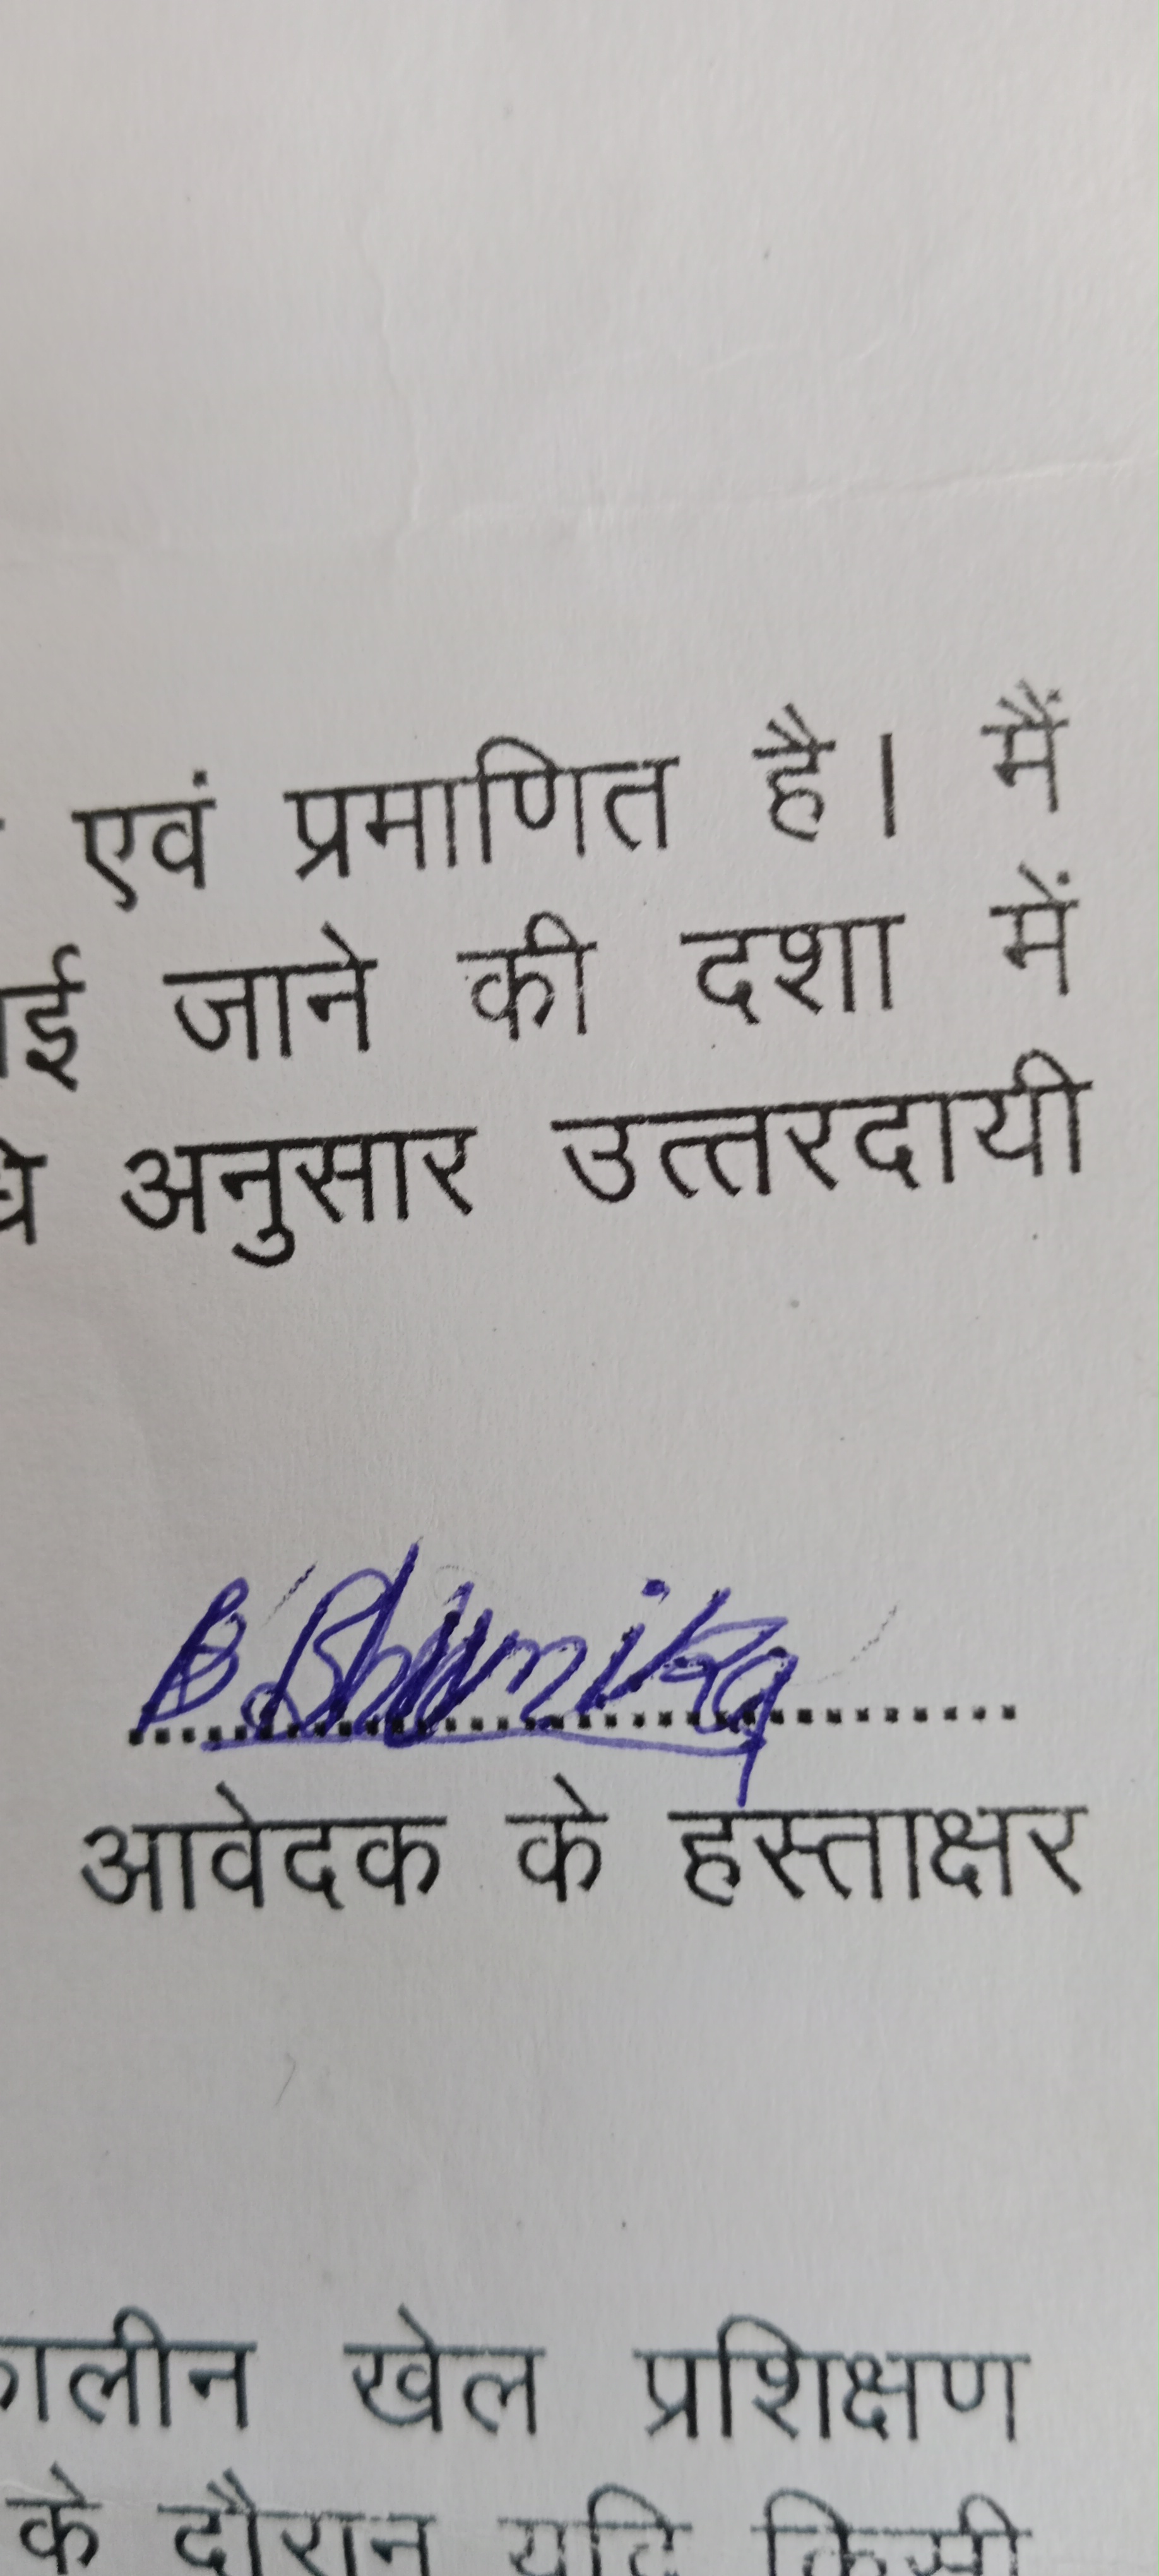 एवं प्रमाणित है। मैं
ई जाने की दशा में
अनुसार उत्तरदायी
B. Bhumika
आवेदक के हस्ताक्षर
कालीन खेल प्रशिक्षण
के दौरान यदि किसी